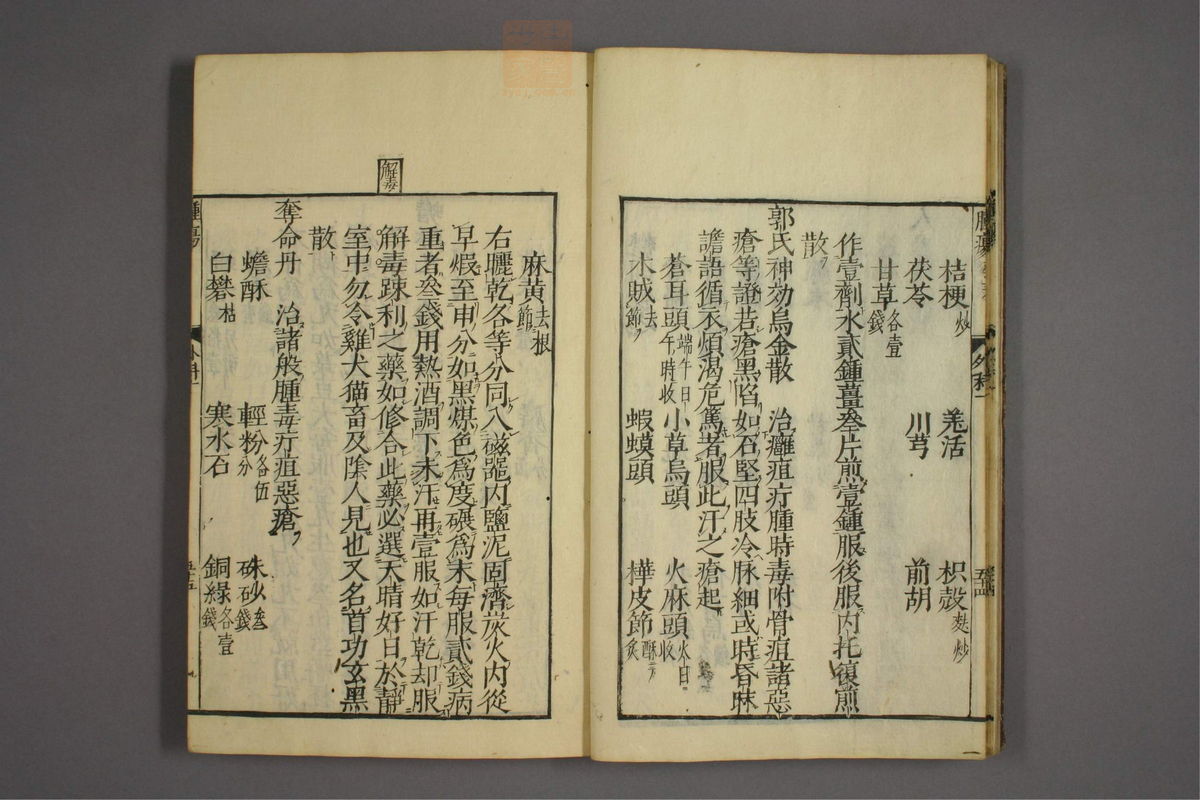 桔梗炒 羗活 枳殼麩炒
茯苓 川芎 前胡
甘草各壹錢
作壹劑水貳鍾薑叁片煎壹鍾服後服内托復煎
散
郭氏神効烏金散 治癰疽疔腫時毒附骨疽諸惡
瘡等證若瘡黑陷如石堅四肢冷脉細或時昏昧
譫語循衣煩渴危篤者服此汗之瘡起
蒼耳頭端午日午時收 小草烏頭 火麻頭火日收
木賊去節 蝦蟆頭 樺皮節酥炙
外科一
麻黄去根節
右曬乾各等分同入磁噐内鹽泥固濟炭火内從
早煆至申分如黑煤色爲度碾爲末每服貳錢病
重者叁錢用熱酒調下未汗再壹服如汗乾却服
解毒踈利之藥如修合此藥必選天晴好日於靜
室中勿令雞犬猫畜及陰人見也又名首功玄黑
散
奪命丹 治諸般腫毒疔疽惡瘡
蟾酥 輕粉各伍分 硃砂叁錢
白礬枯 寒水石 銅綠各壹錢
解毒
腫瘍
五十五